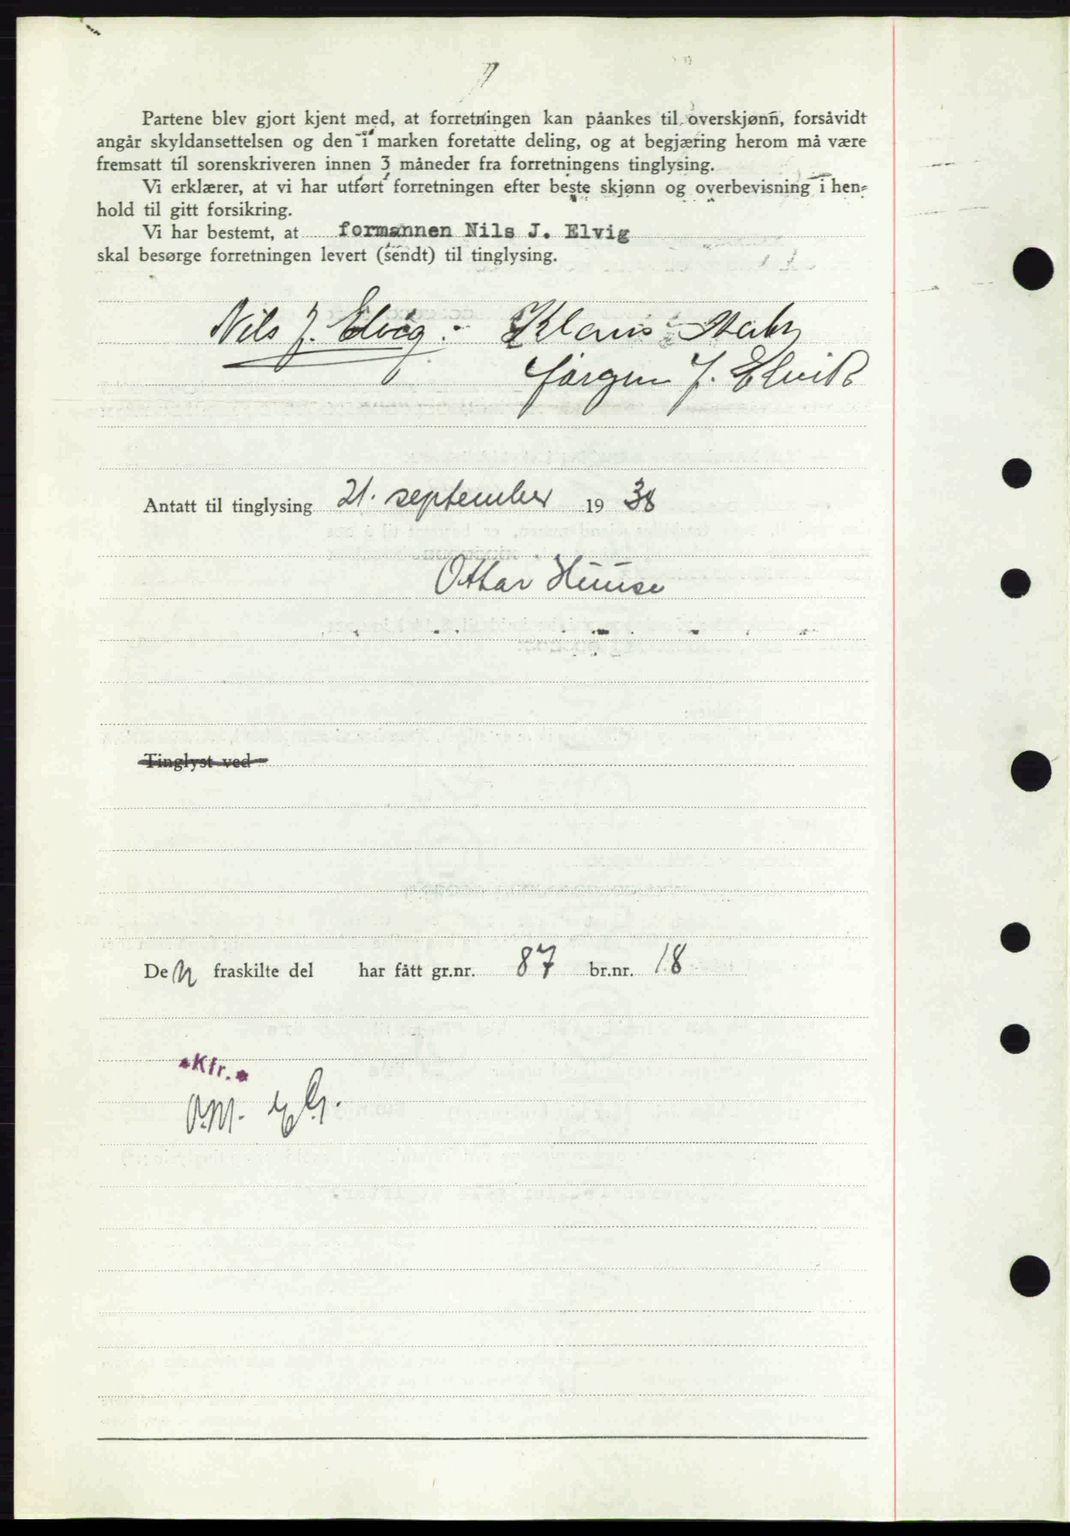 Partene blev gjort kjent med, at forretningen kan påankes til overskjønn, forsåvidt
angår skyldansettelsen og den i marken foretatte deling, og at begjæring herom må være
fremsatt til sorenskriveren innen 3 måneder fra forretningens tinglysing.
Vi erklærer, at vi har utført forretningen efter beste skjønn og overbevisning i hen-
hold til gitt forsikring.
Vi har bestemt, at formannen Nils J. Elvig
skal besørge forretningen levert (sendt) til tinglysing.
Nils J. Elvig. Klaus
Jørgen J. Elvik
Antatt til tinglysing 21. september 19 38
Ottar Huuse
Tinglyst ved
Den fraskilte del har fått gr.nr. 87 br.nr. 18
*Kfr.*
O.M.